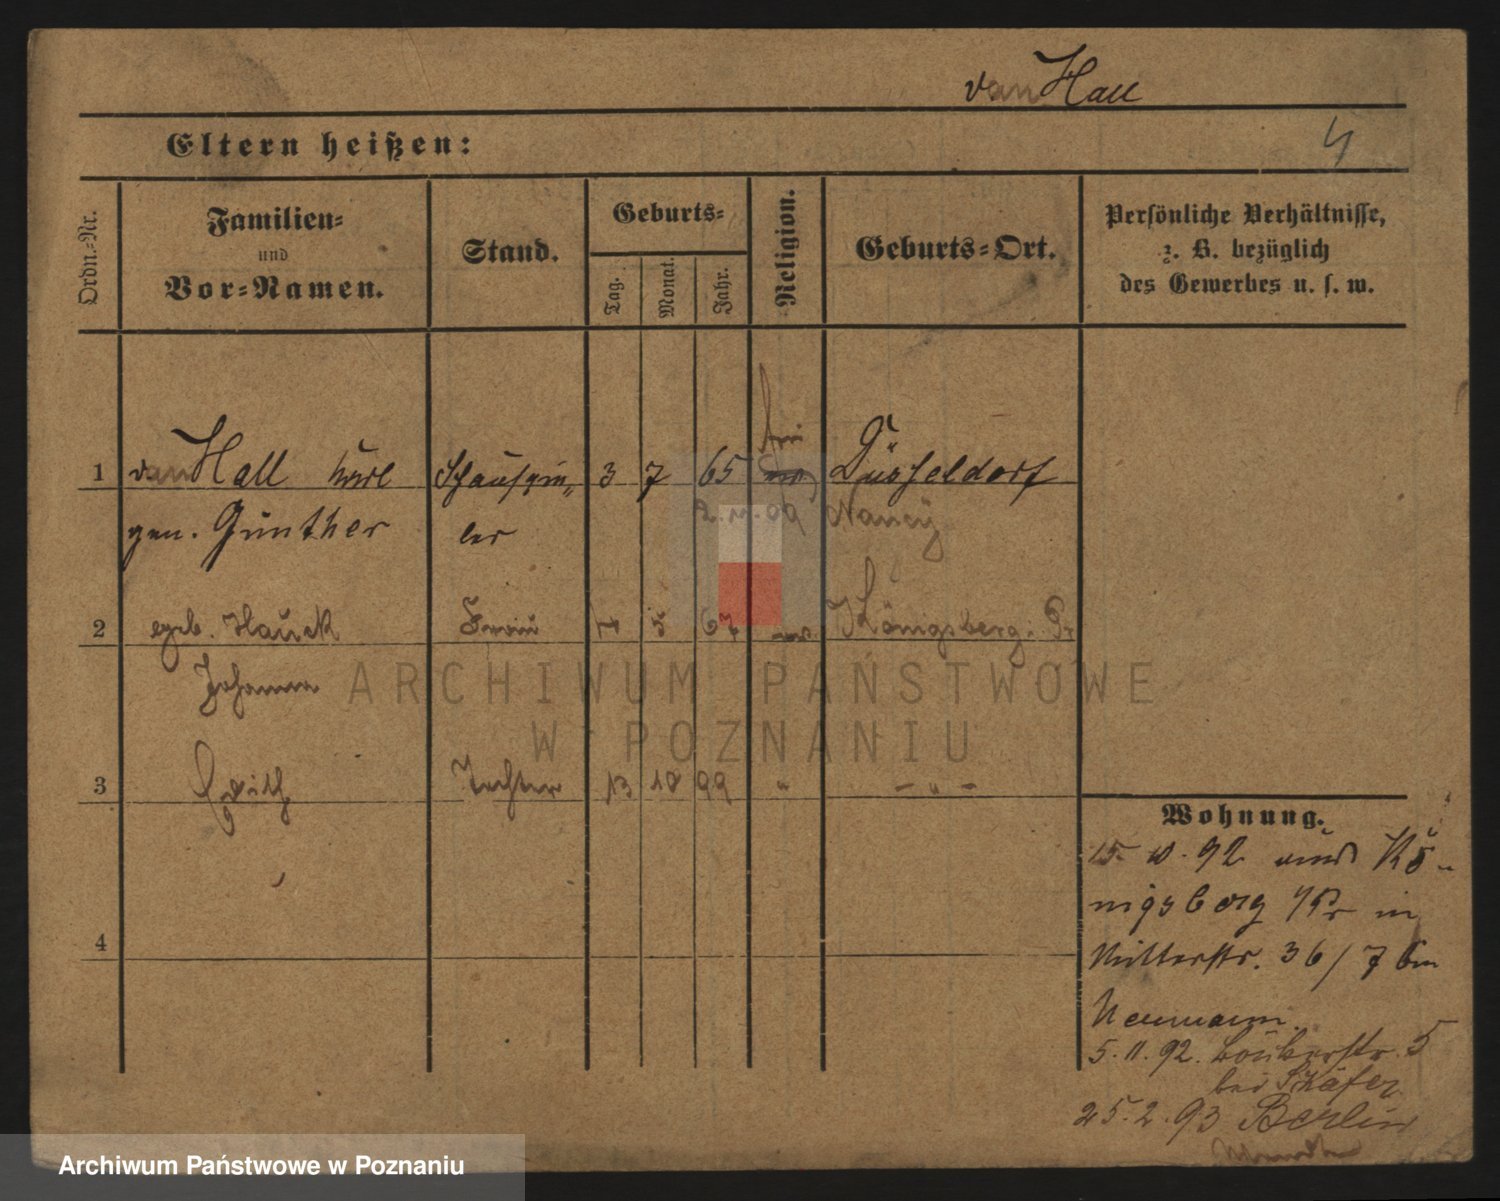 van Hall
Eltern heißen:
4
Ordn.-Nr.
Familien-
und
Vor-Namen.
Stand.
Geburts-
Tag.
Monat.
Jahr.
Religion.
Geburts-Ort.
Persönliche Verhältnisse,
z. B. bezüglich
des Gewerbes u. s. w.
1 van Hall Karl Schauspie„ 3 7 65 Düsseldorf
gen. Günther ler
99 Nancy
2 geb. Hauck Frau 7 5 67 Königsberg. Pr
Johanna
3 Edith Tochter 13 10 99 „ – „ –
4
Wohnung.
15. 10. 92 aus Kö-
nigsberg i/Pr in
Ritterstr. 36/7 bei
Neumann.
5. 11. 92. 5
bei Schäfer
25. 2. 93 Berlin
ARCHIWUM PAŃSTWOWE
W POZNANIU
Archiwum Państwowe w Poznaniu